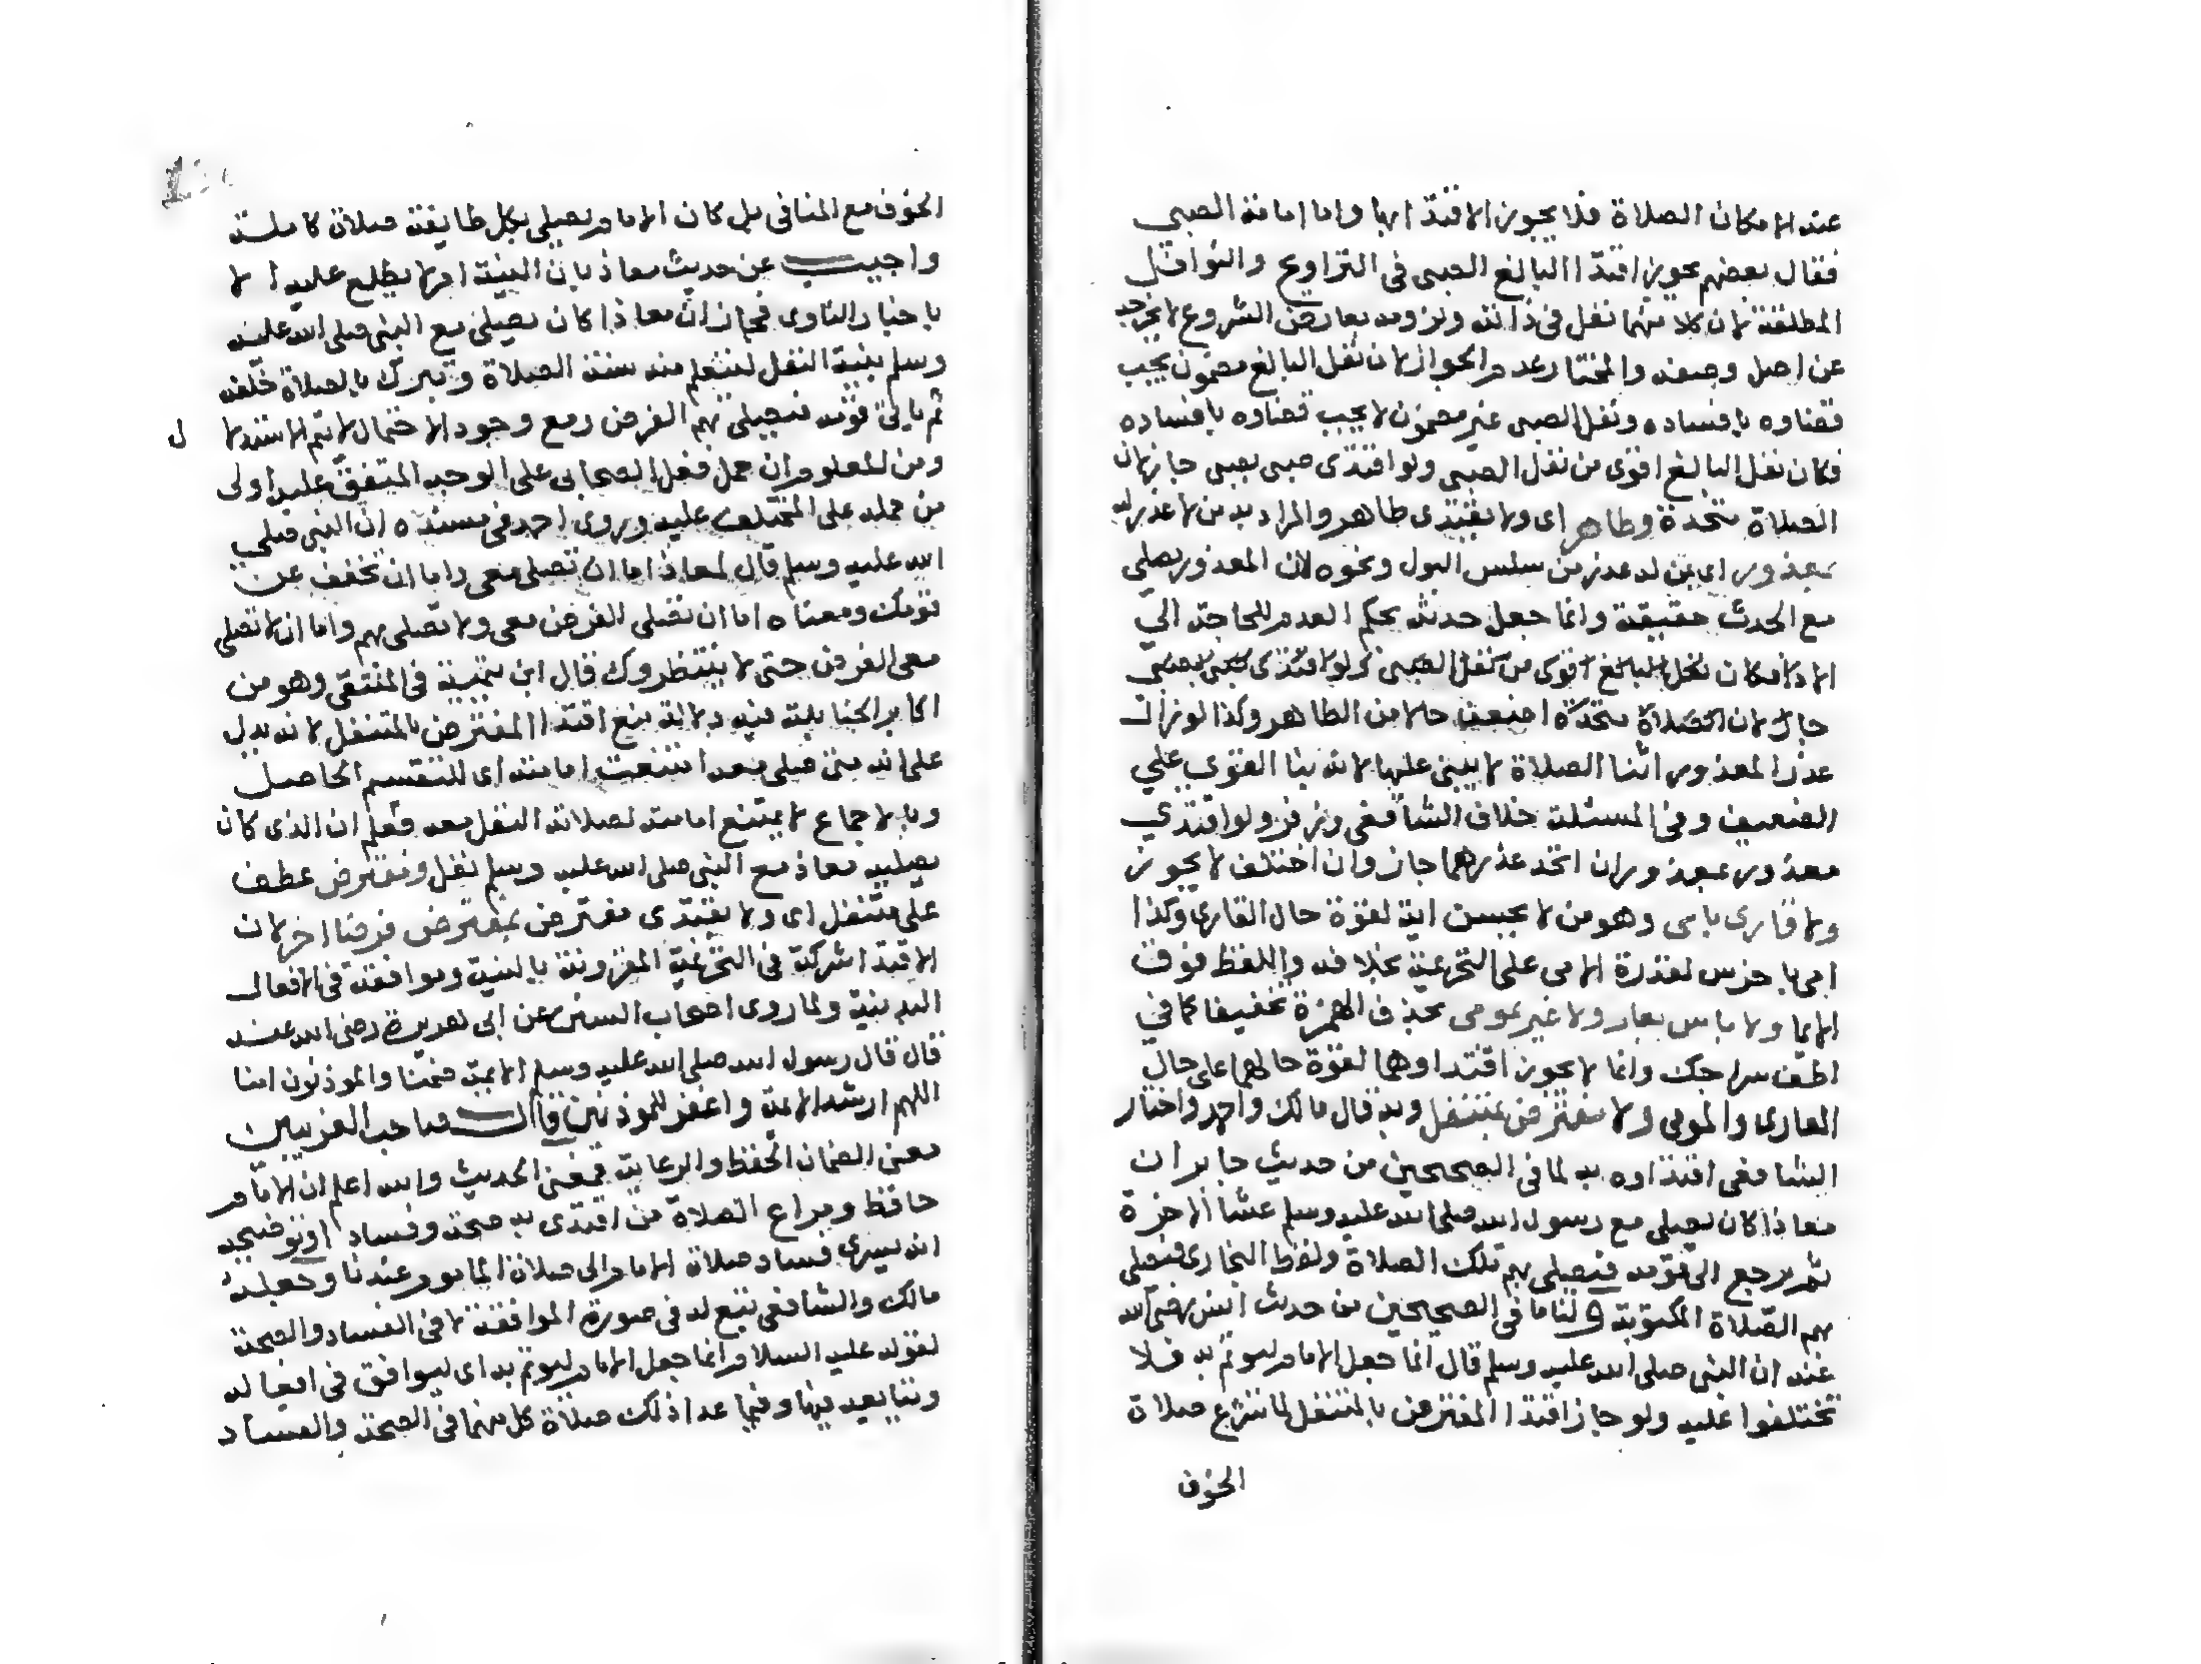 عند الامكان الصلاة فلا يجوز الاقتدا بها واما امامة الصبي
فقال بعضهم يجوز اقتدا البالغ الصبى فى التراويح والنوافل
المطلقة لان كلا منهما نفل فى ذاته ولزومه بعارض الشروع لا يخرجه
عن اصل وصفه والمختار عدم الجواز لان نفل البالغ مضمون يجب
قضاوه بافساده ونفل الصبى غير مضمون لا يجب قضاوه بافساده
فكان نفل البالغ اقوى من نفل الصبى ولو اقتدى صبى بصبى جاز لان
الصلاة متحدة وطاهر اى ولا يقتدى طاهر والمراد به من لا عذر له
بمعذور اى بمن له عذر من سلس البول ونحوه لان المعذور يصلي
مع الحدث حقيقة وانما جعل حدثه بحكم العدم للحاجة الي
الادا فكان نفل البالغ اقوى من نفل الصبى ولو اقتدى صبى بصبى
جاز لان الصلاة متحدة اضعف حالا من الطاهر وكذا لو زال
عذر المعذور اثنا الصلاة لا يبنى عليها لانه بنا القوى علي
الضعيف وفى المسئلة خلاف الشافعى وزفر ولو اقتدي
معذور بمعذور ان اتحد عذرهما جاز وان اختلف لا يجوز
ولا قارى بامى وهو من لا يحسن اية لقوة حال القارى وكذا
امى باخرس لقدرة الامى على التحريمة بخلافه واللفظ فوق
الايما ولا باس بعار ولا غير بمومى بحذف الهمزة تخفيفا كما في
اطف سراجك وانما لا يجوز اقتداوهما لقوة حالهما على حال
العارى والمومى ولا مفترض بمتنفل وبه قال مالك واحمد واختار
الشافعى اقتداوه به لما فى الصحيحين من حديث جابر ان
معاذا كان يصلى مع رسول الله صلى الله عليه وسلم عشا الاخرة
ثم يرجع الى قومه فيصلى بهم تلك الصلاة ولفظ البخارى فيصلى
بهم الصلاة المكتوبة ولنا ما فى الصحيحين من حديث انس رضى الله
عنه ان النبى صلى الله عليه وسلم قال انما جعل الامام ليوتم به فلا
تختلفوا عليه ولو جاز اقتدا المفترض بالمتنفل لما شرع صلاة
الخوف
الخوف مع المنافى بل كان الامام يصلى بكل طايفة صلاة كاملة
واجيب عن حديث معاذ بان النية امر لا يطلع عليه الا
باخبار الناوى فجاز ان معاذا كان يصلى مع النبى صلى الله عليه
وسلم بنية النفل ليتعلم منه سنة الصلاة وتبرك بالصلاة خلفه
ثم ياتى قومه فيصلى بهم الفرض ومع وجود الاحتمال لا يتم الاستدلا
ل
ومن المعلوم ان حمل فعل الصحابى على الوجه المتفق عليه اولى
من حمله على المختلف عليه وروى احمد فى مسنده ان النبى صلي
الله عليه وسلم قال لمعاذ اما ان تصلى معى واما ان تخفف عن
قومك ومعناه اما ان تصلى الفرض معى ولا تصلى بهم واما ان لا تصلي
معى الفرض حتى لا ينتظروك قال ابن تيمية فى المنتقى وهو من
اكابر الحنابلة فيه دلالة منع اقتدا المفترض بالمتنفل لانه يدل
على انه متى صلى معه امتنعت امامته اى للتقسيم الحاصل
وبالاجماع لا يمتنع امامته لصلاته النفل معه فعلم ان الذى كان
يصليه معاذ مع النبى صلى الله عليه وسلم نفل ومفترض عطف
على متنفل اى ولا يقتدى مفترض بمفترض فرضا اخر لان
الاقتدا شركة فى التحريمة المقرونة بالنية وموافقة فى الافعال
البدنية ولما روى اصحاب السنن عن ابى هريرة رضى الله عنه
قال قال رسول الله صلى الله عليه وسلم الايمة ضمنا والموذنون امنا
اللهم ارشد الايمة واغفر للموذنين قال صاحب الغريبين
معنى الضمان الحفظ والرعاية فمعنى الحديث والله اعلم ان الامام
حافظ ومراع لصلاة من اقتدى به صحة وفسادا
انه يسرى فساد صلاة الامام الى صلاة الماموم عندنا وجعله
مالك والشافعى تبع له فى صورة الموافقة لا فى الفساد والصحة
لقوله عليه السلام انما جعل الامام ليوتم به اى ليوافق فى افعاله
ويتابعه فيها وفيما عدا ذلك صلاة كل منهما فى الصحة والفساد